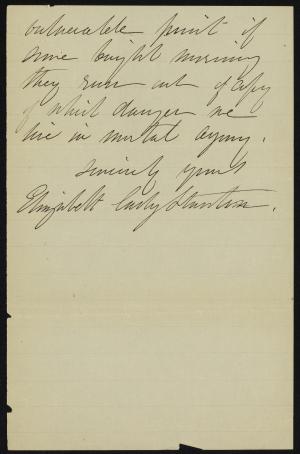 vulnerable point if
some bright morning
they run out of copy
of which danger we
live in mortal agony.
sincerely yours
Elizabeth Cady Stanton.